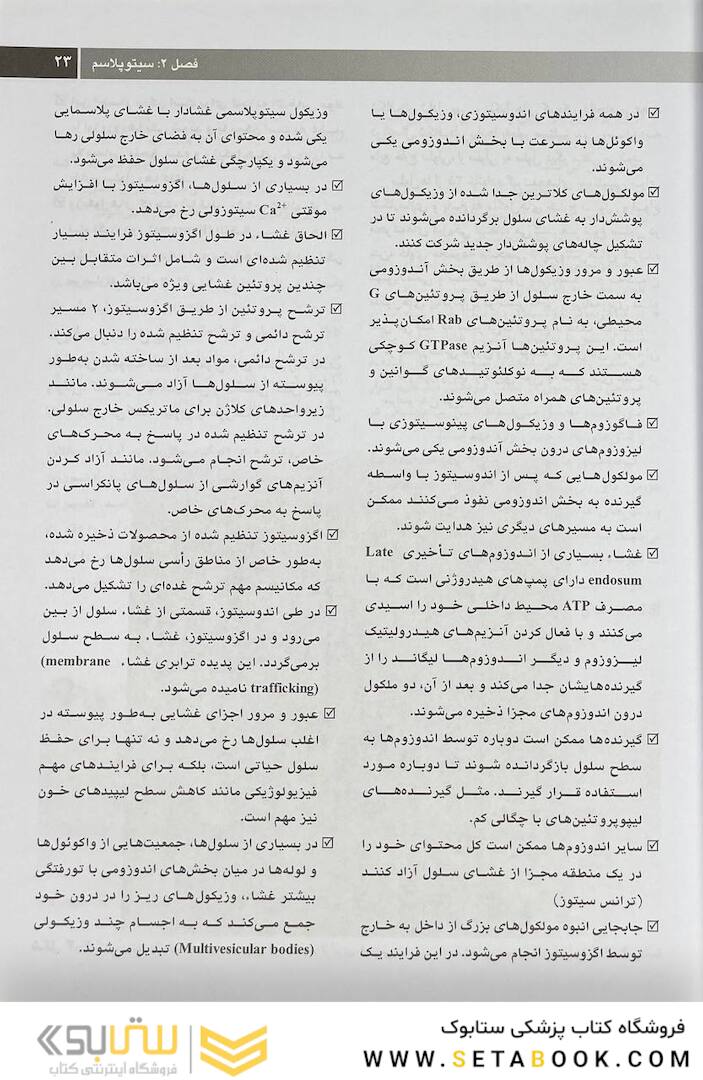 فصل ۲: سیتوپلاسم ۲۳
در همه فرایندهای اندوسیتوزی، وزیکول‌ها یا
واکوئل‌ها به سرعت با بخش اندوزومی یکی
می‌شوند.
مولکول‌های کلاترین جدا شده از وزیکول‌های
پوشش‌دار به غشای سلول برگردانده می‌شوند تا در
تشکیل چاله‌های پوشش‌دار جدید شرکت کنند.
عبور و مرور وزیکول‌ها از طریق بخش آندوزومی
به سمت خارج سلول از طریق پروتئین‌های G
محیطی، به نام پروتئین‌های Rab امکان‌پذیر
است. این پروتئین‌ها آنزیم GTPase کوچکی
هستند که به نوکلئوتیدهای گوانین و
پروتئین‌های همراه متصل می‌شوند.
فاگوزوم‌ها و وزیکول‌های پینوسیتوزی با
لیزوزوم‌های درون بخش آندوزومی یکی می‌شوند.
مولکول‌هایی که پس از اندوسیتوز با واسطه
گیرنده به بخش اندوزومی نفوذ می‌کنند ممکن
است به مسیرهای دیگری نیز هدایت شوند.
غشاء بسیاری از اندوزوم‌های تأخیری Late
endosum دارای پمپ‌های هیدروژنی است که با
مصرف ATP محیط داخلی خود را اسیدی
می‌کنند و با فعال کردن آنزیم‌های هیدرولیتیک
لیزوزوم و دیگر اندوزوم‌ها لیگاند را از
گیرنده‌هایشان جدا می‌کند و بعد از آن، دو ملکول
درون اندوزوم‌های مجزا ذخیره می‌شوند.
گیرنده‌ها ممکن است دوباره توسط اندوزوم‌ها به
سطح سلول بازگردانده شوند تا دوباره مورد
استفاده قرار گیرند. مثل گیرنده‌های
لیپوپروتئین‌های با چگالی کم.
سایر اندوزوم‌ها ممکن است کل محتوای خود را
در یک منطقه مجزا از غشای سلول آزاد کنند
(ترانس سیتوز)
جابجایی انبوه مولکول‌های بزرگ از داخل به خارج
توسط اگزوسیتوز انجام می‌شود. در این فرایند یک
وزیکول سیتوپلاسمی غشادار با غشای پلاسمایی
یکی شده و محتوای آن به فضای خارج سلولی رها
می‌شود و یکپارچگی غشای سلول حفظ می‌شود.
در بسیاری از سلول‌ها، اگزوسیتوز با افزایش
موقتی Ca²⁺ سیتوزولی رخ می‌دهد.
الحاق غشاء در طول اگزوسیتوز فرایند بسیار
تنظیم شده‌ای است و شامل اثرات متقابل بین
چندین پروتئین غشایی ویژه می‌باشد.
ترشح پروتئین از طریق اگزوسیتوز، ۲ مسیر
ترشح دائمی و ترشح تنظیم شده را دنبال می‌کند.
در ترشح دائمی، مواد بعد از ساخته شدن به‌طور
پیوسته از سلول‌ها آزاد می‌شوند. مانند
زیرواحدهای کلاژن برای ماتریکس خارج سلولی.
در ترشح تنظیم شده در پاسخ به محرک‌های
خاص، ترشح انجام می‌شود. مانند آزاد کردن
آنزیم‌های گوارشی از سلول‌های پانکراسی در
پاسخ به محرک‌های خاص.
اگزوسیتوز تنظیم شده از محصولات ذخیره شده،
به‌طور خاص از مناطق رأسی سلول‌ها رخ می‌دهد
که مکانیسم مهم ترشح غده‌ای را تشکیل می‌دهد.
در طی اندوسیتوز، قسمتی از غشاء سلول از بین
می‌رود و در اگزوسیتوز، غشاء به سطح سلول
برمی‌گردد. این پدیده ترابری غشاء (membrane
trafficking) نامیده می‌شود.
عبور و مرور اجزای غشایی به‌طور پیوسته در
اغلب سلول‌ها رخ می‌دهد و نه تنها برای حفظ
سلول حیاتی است، بلکه برای فرایندهای مهم
فیزیولوژیکی مانند کاهش سطح لیپیدهای خون
نیز مهم است.
در بسیاری از سلول‌ها، جمعیت‌هایی از واکوئول‌ها
و لوله‌ها در میان بخش‌های اندوزومی با تورفتگی
بیشتر غشاء، وزیکول‌های ریز را در درون خود
جمع می‌کند که به اجسام چند وزیکولی
(Multivesicular bodies) تبدیل می‌شوند.
فروشگاه کتاب پزشکی ستابوک
WWW.SETABOOK.COM
ستابوک
فروشگاه اینترنتی کتاب